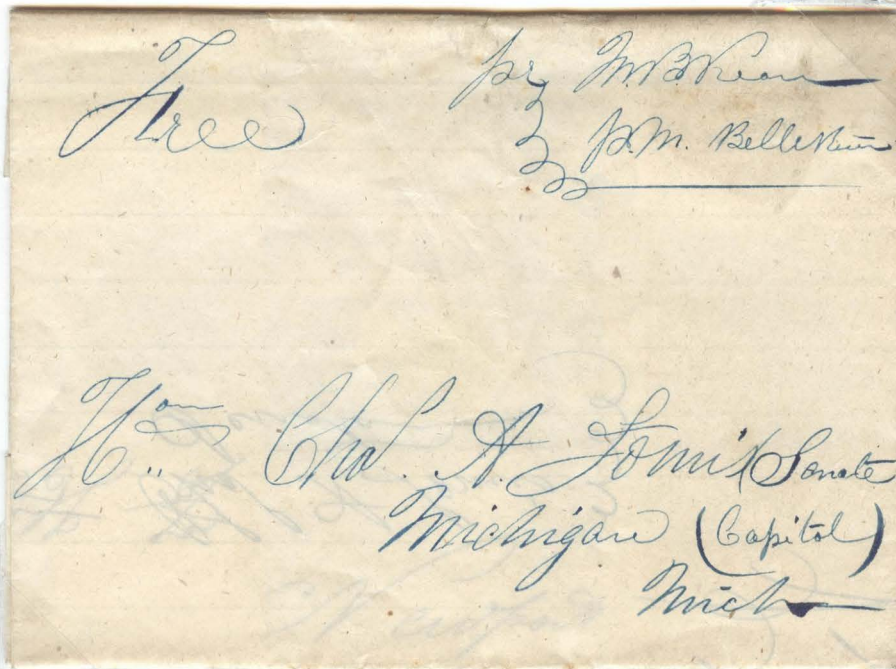 Free
pr M. B. Kean
P.M. Belle River
Hon Chas. A. Lomis (Senate
Michigan (Capitol)
Mich